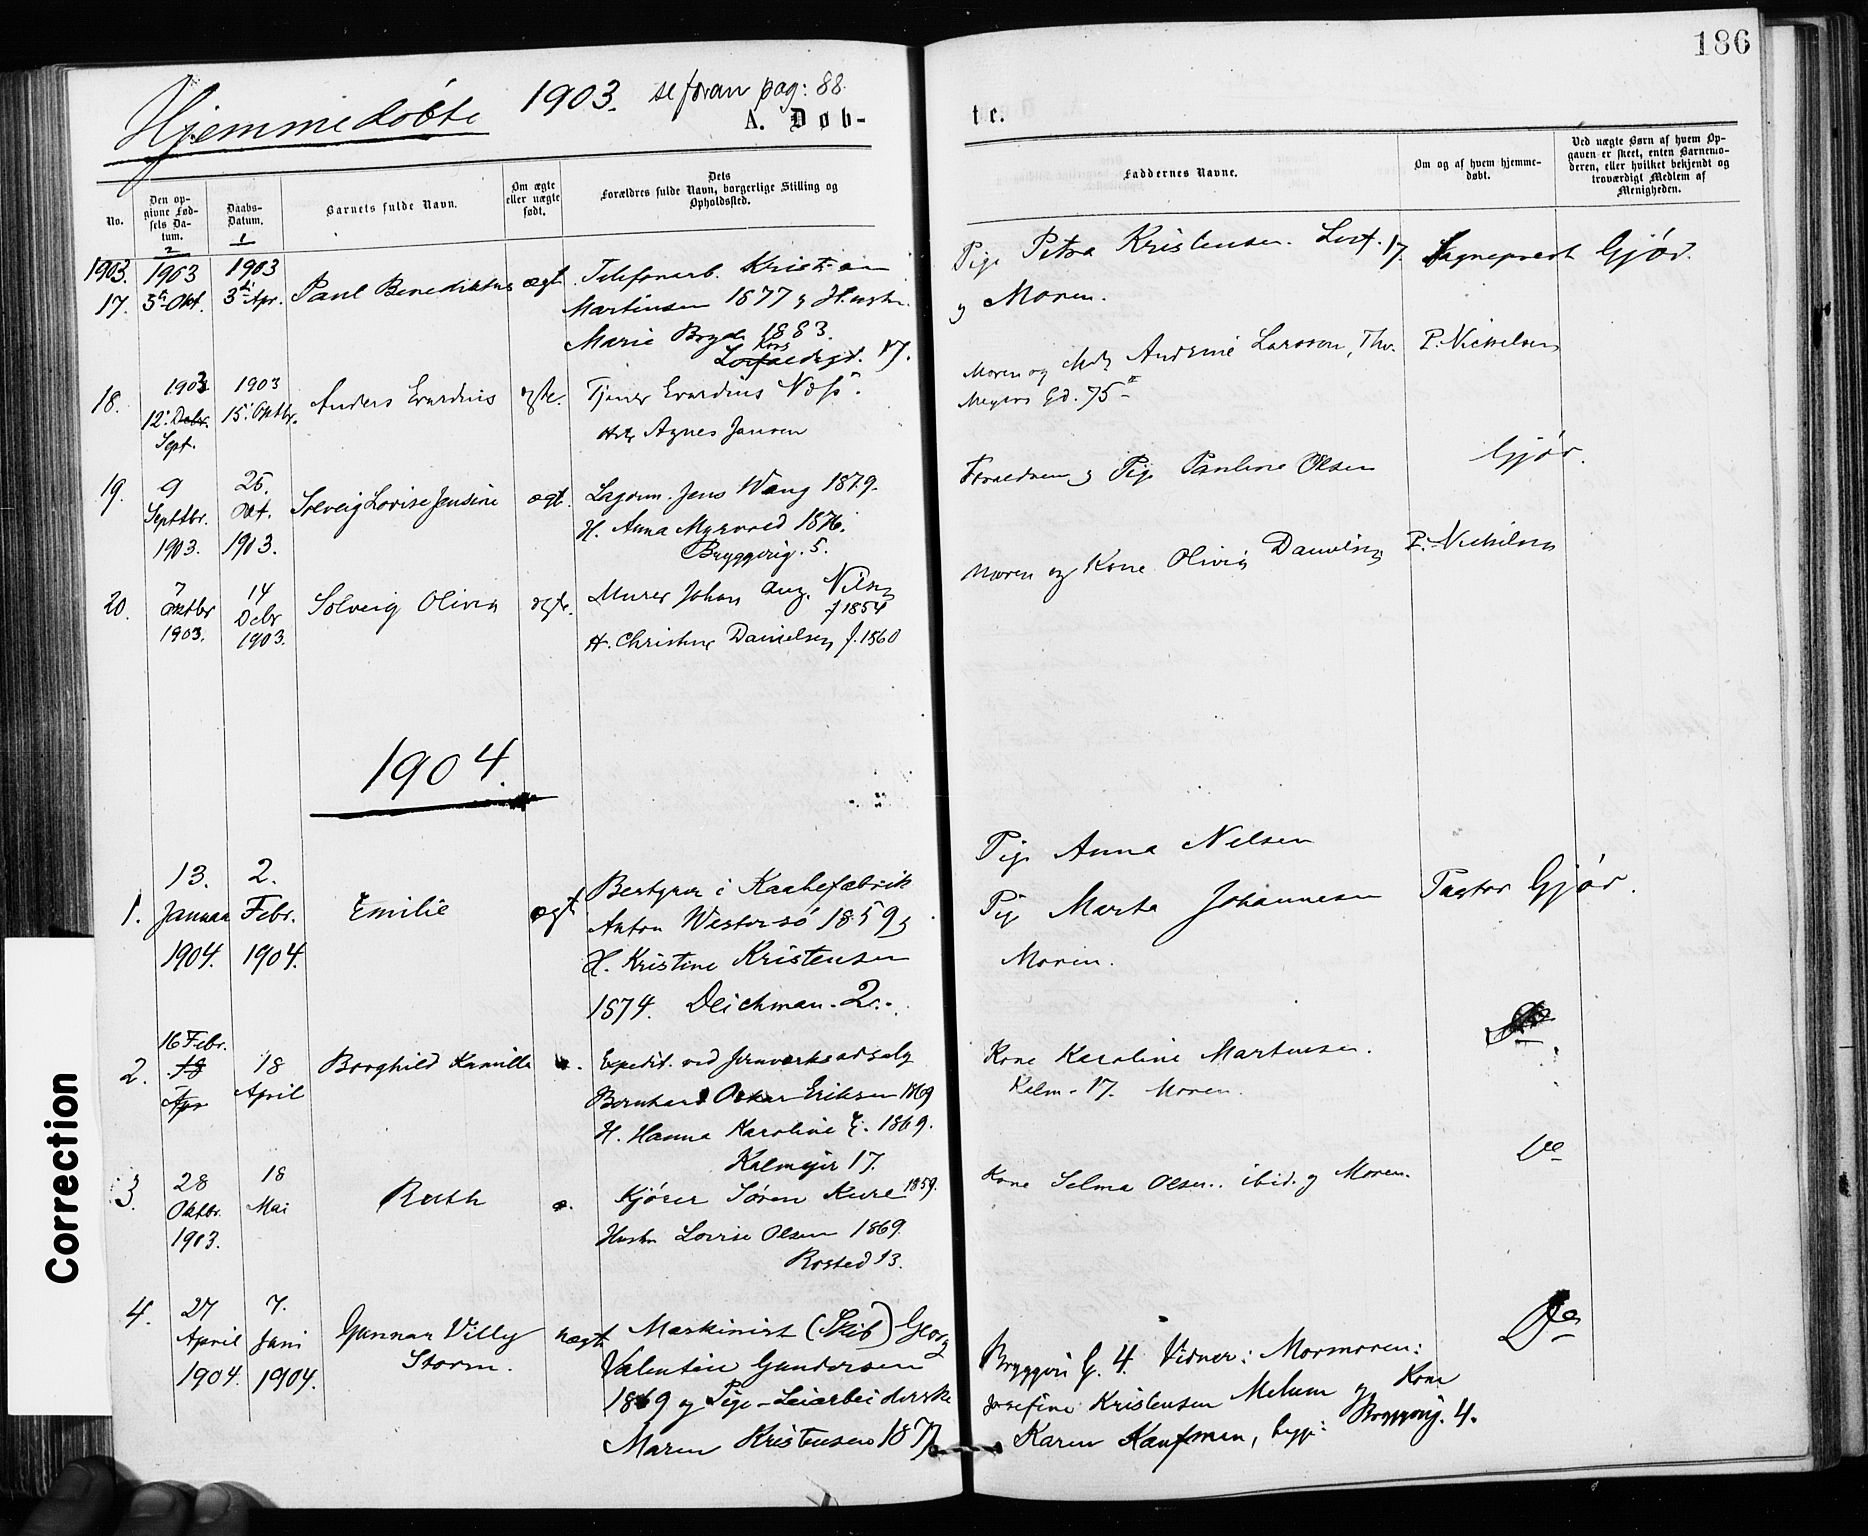 186
Hjemmedöbte 1903. se foran pag: 88.
A. Døb-
te.
No.
Den op-
givne Fød-
sels Da-
tum.
Daabs-
Datum.
Barnets fulde Navn.
Om ægte
eller uægte
født.
Dets
Forældres fulde Navn, borgerlige Stilling og
Opholdssted.
Faddernes Navne.
Om og af hvem hjemme-
døbt.
Ved uægte Børn af hvem Op-
gaven er skeet, enten Barnemo-
deren, eller hvilket bekjendt og
troværdigt Medlem af
Menigheden.
2
1
1903.
17.
1903
3die Okt.
1903
3die Apr.
Paul Benediktus
ægte
Telefonarb. Kristian
Martinsen 1877 g Hustru
Marie Bryde 1883.
17.
Pige Petra Kristensen. 17.
g Moren.
Sogneprest Gjör.
18.
1903
12. Debr.
Sept.
1903
15. Oktbr.
Anders Evardius
ægte.
Tjener Evardius Næss.
Agnes Jansen
Moren og Andrine Larsson, Thv.
Meyers Gd. 75
P. Nickelsen
19.
9
Septbr.
1903.
25.
Okt.
1903.
Solveig Lovise Jensine
ægt.
Lagerm. Jens Wang 1879.
H. Anna Myrvold 1876.
Bryggerig. 5.
Forældrene g Pige Pauline Olsen
Gjör.
20.
7
Oktbr
1903.
14
Debr
1903.
Solveig Olivia
ægte.
Murer Johan Aug. Nilsen
f 1854
H. Christine Danielsen f. 1860
Moren og Kone Olivia Danielsen
P. Nickelsen
1904.
1.
13.
Januar
1904.
2.
Febr.
1904.
Emilie
ægt
Bestyrer i Kaabefabrik
Anton Westersö 1859 g
H. Kristine Kristensen
1874. Deichman. 2.
Pige Anna Nelsen
Pige Marta Johannesen
Moren.
Pastor Gjör.
2.
16 Febr.
18
Apr
18
April
Borghild Kamilla
Expedit. ved Jernvareudsalg
Bernhard Oskar Eriksen 1869
H. Hanna Karoline E. 1869.
Kalmeyer 17.
Kone Karoline Martinsen.
Kalm. 17. Moren.
Do
3.
28
Oktbr.
1903.
18
Mai
Ruth
Kjörer Sören Kure 1859.
Hustru Lovise Olsen 1869.
Rosted 13.
Kone Selma Olsen. ibid. g Moren.
Do
4.
27
April
1904.
7.
Juni
1904.
Gunnar Villy
Storm.
uægt
Maskinist (Skib) Georg
Valentin Gundersen
1869 g Pige - Leiarbeiderske
Maren Kristensen 187
Bryggeri G. 4. Vidner: Mormoren:
Josefine Kristensen Melum og Kone
Karen Kaufman, begge: Bryggerig. 4.
Do
Correction